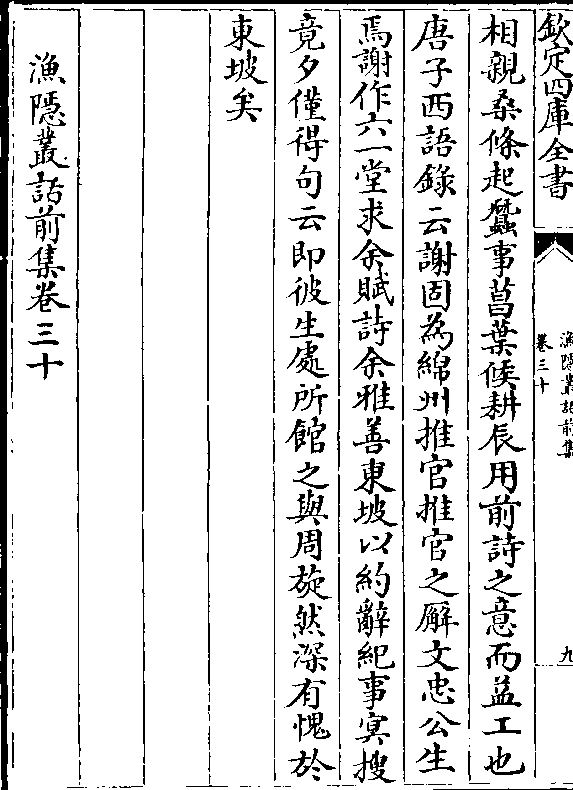 欽定四庫全書
漁隱叢話前集
卷三十
九
相親桑條起蠶事菖葉候耕辰用前詩之意而益工也
唐子西語錄云謝固為綿州推官推官之廨文忠公生
焉謝作六一堂求余賦詩余雅善東坡以約辭紀事冥搜
竟夕僅得句云即彼生處所館之與周旋然深有愧於
東坡矣
漁隱叢話前集卷三十